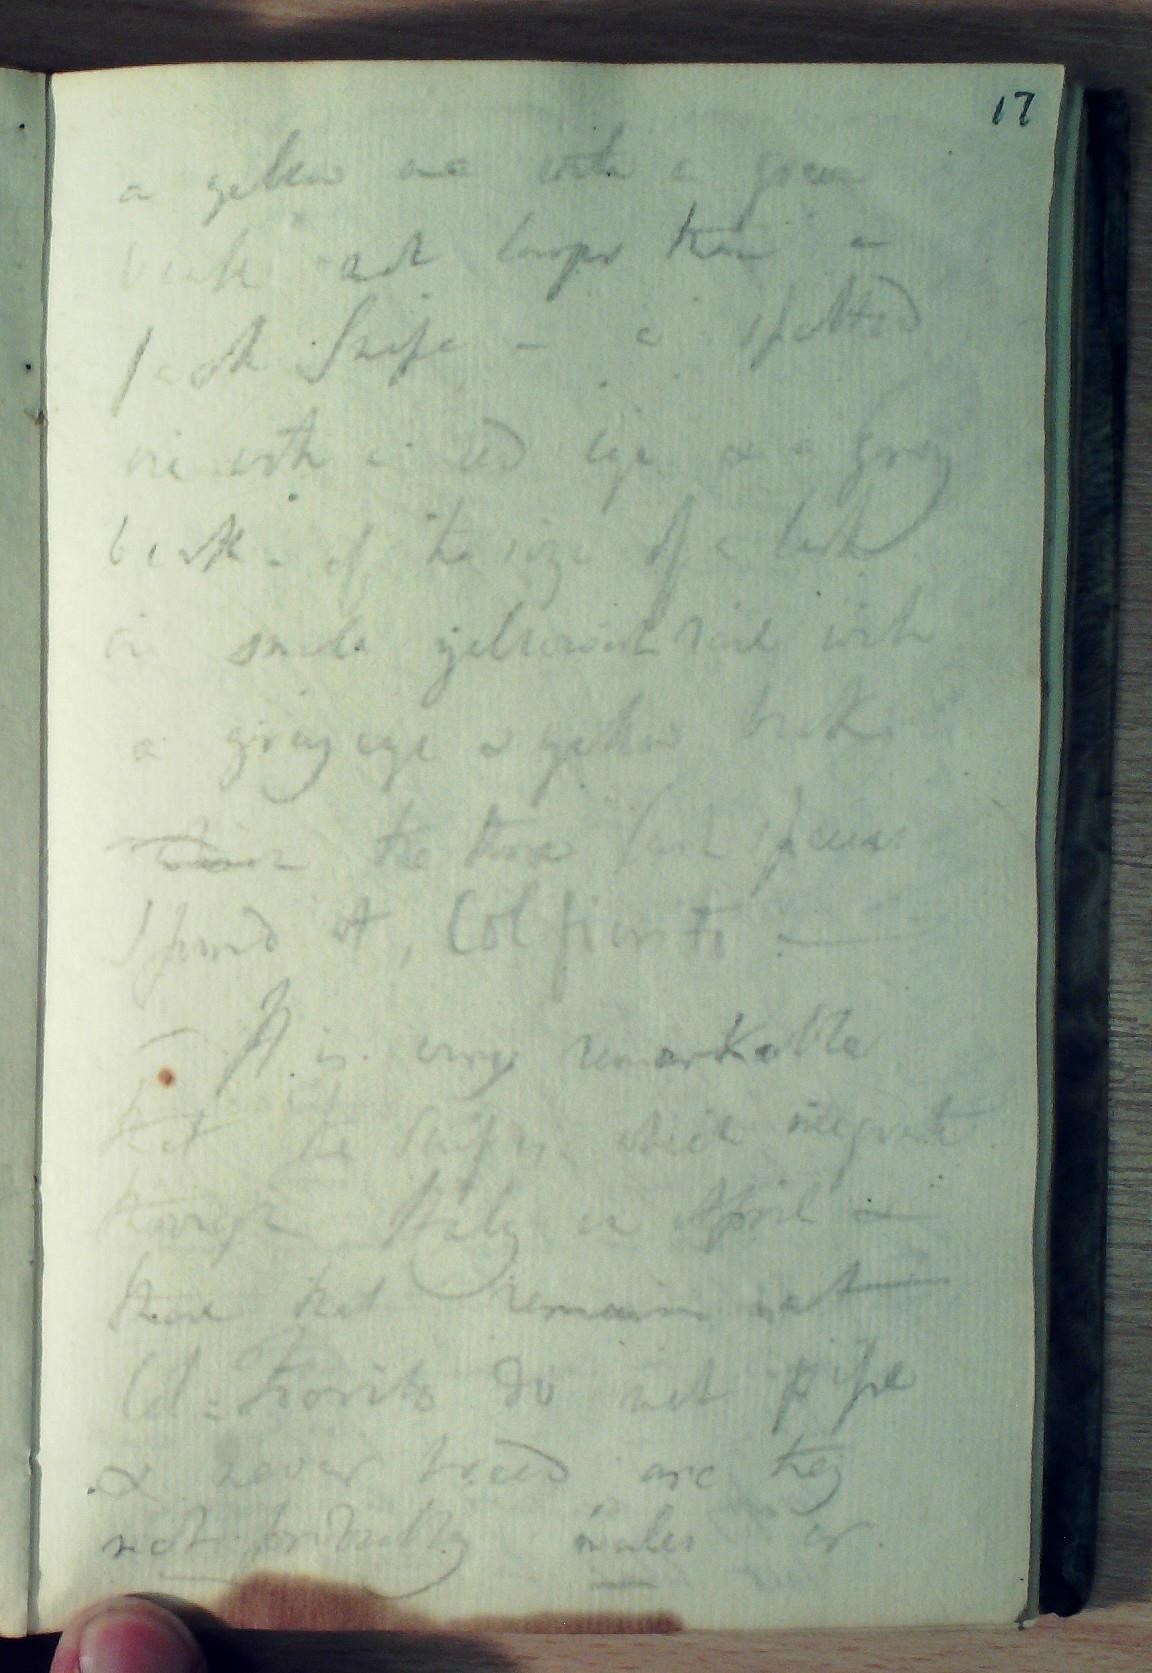 17
a yellow one with a green
beak not larger than a
Jack Snipe – a spotted
one with a red eye & a grey
beak – of the size of a lark
a small yellowish rail with
a grey eye & yellow beak
the three last species
I found at, Colfiorito
– It is very remarkable
that the snipes which migrate
through Italy in April &
those that remain at
Col=Fiorito do not pipe
& never breed are they
not probably mules or